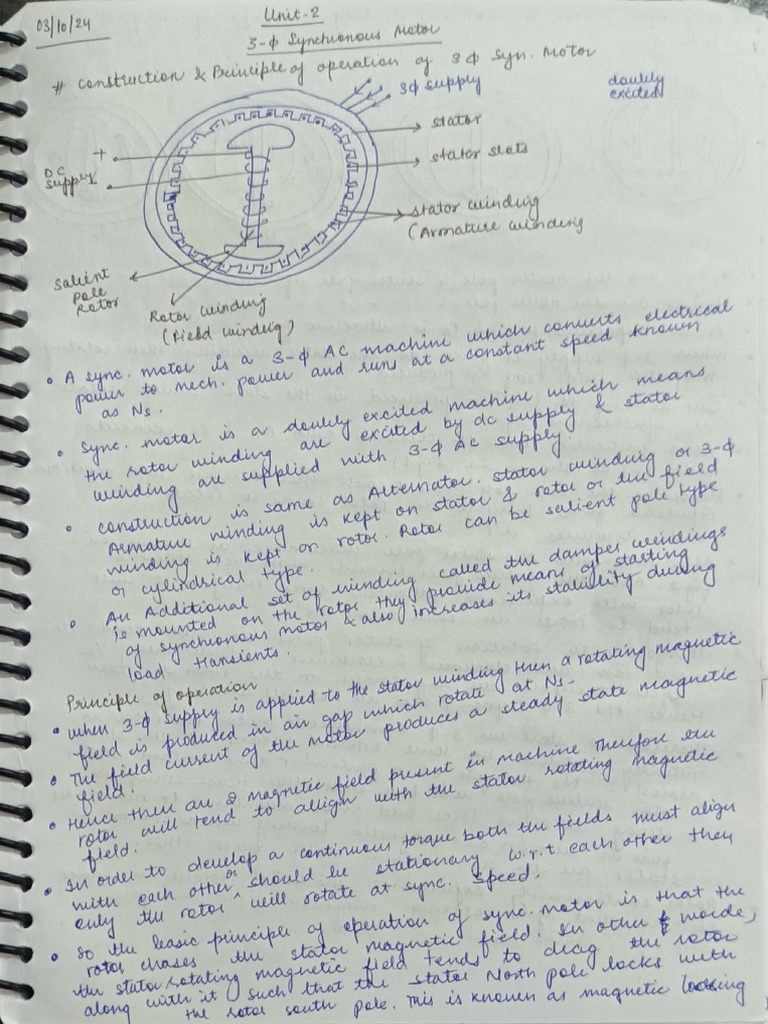 03/10/24
Unit-2
3-ϕ Synchronous Motor
# Construction & Principle of operation of 3ϕ Syn. Motor
3ϕ supply
doubly
excited
stator
stator slots
stator winding
(Armature winding
+
DC
supply
-
Salient
pole
Rotor
Rotor winding
(Field winding)
• A sync. motor is a 3-ϕ AC machine which converts electrical
power to mech. power and runs at a constant speed known
as Ns.
• Sync. motor is a doubly excited machine which means
the rotor winding are excited by dc supply & stator
winding are supplied with 3-ϕ AC supply.
• Construction is same as Alternator. stator winding or 3-ϕ
Armature winding is kept on stator & rotor or the field
winding is kept on rotor. Rotor can be salient pole type
or cylindrical type.
• An Additional set of winding called the damper windings
is mounted on the rotor they provide means of starting
of synchronous motor & also increases its stability during
load transients.
Principle of operation
• when 3-ϕ supply is applied to the stator winding then a rotating magnetic
field is produced in air gap which rotate at Ns.
• The field current of the motor produces a steady state magnetic
field.
• Hence there are 2 magnetic field present in machine Therefore the
rotor will tend to allign with the stator rotating magnetic
field.
• In order to develop a continuous torque both the fields must align
with each other or should be stationary w.r.t each other they
only the rotor will rotate at sync. speed.
• So the basic principle of operation of sync. motor is that the
rotor chases the stator magnetic field. In other words,
the stator rotating magnetic field tends to drag the rotor
along with it such that the stator North pole locks with
the rotor south pole. This is known as magnetic locking